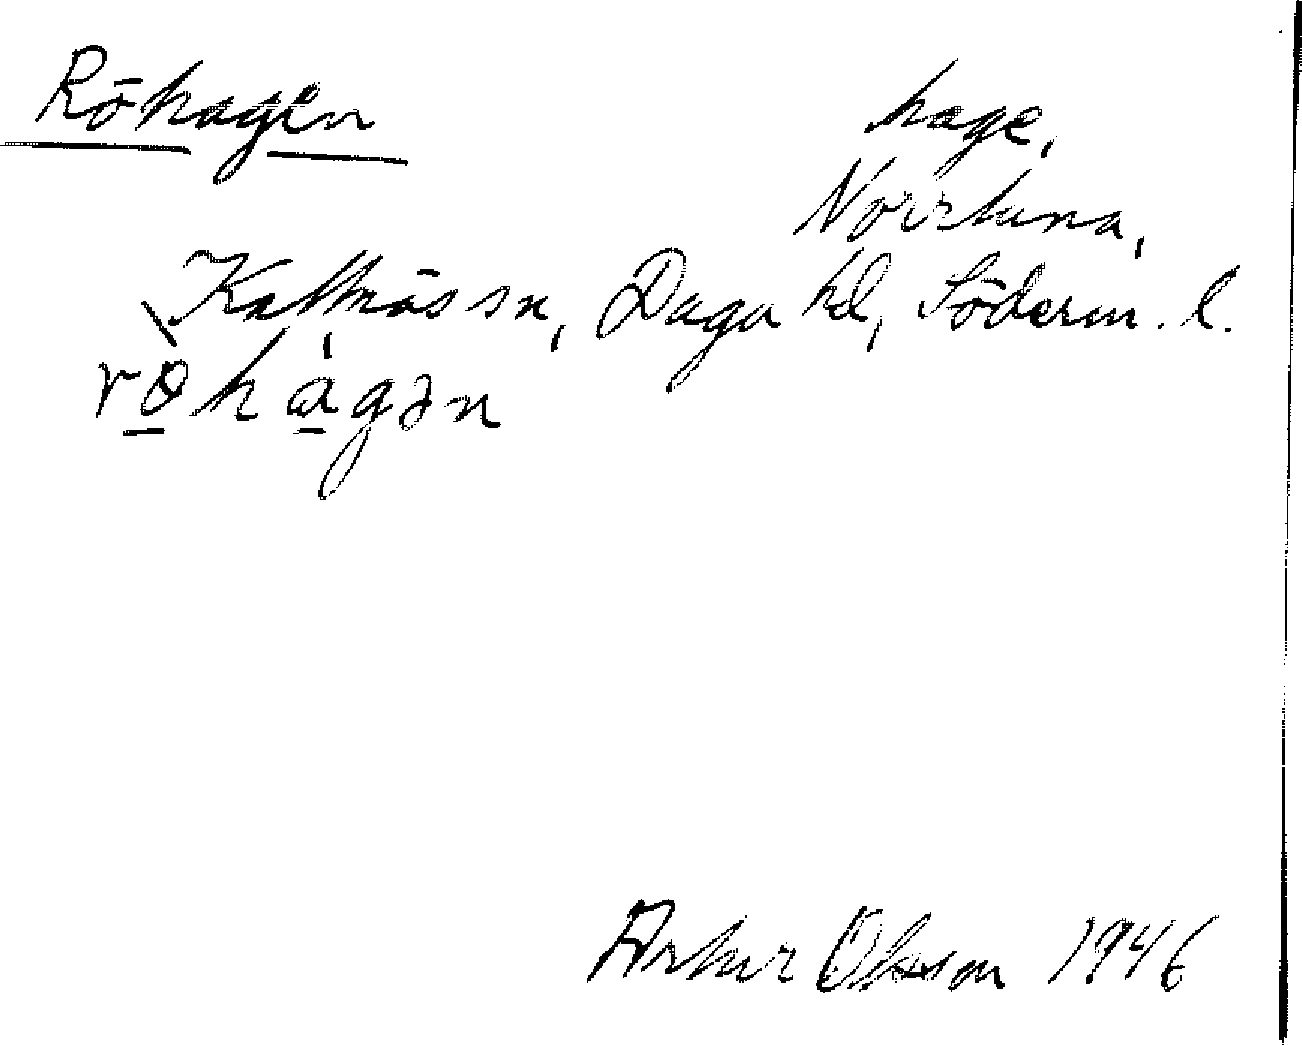 Röhagen
hage,
Norrtuna,
Kattnäs sn, Daga hd, Söderm. l.
rö̀hágən
Artur Olsson 1946